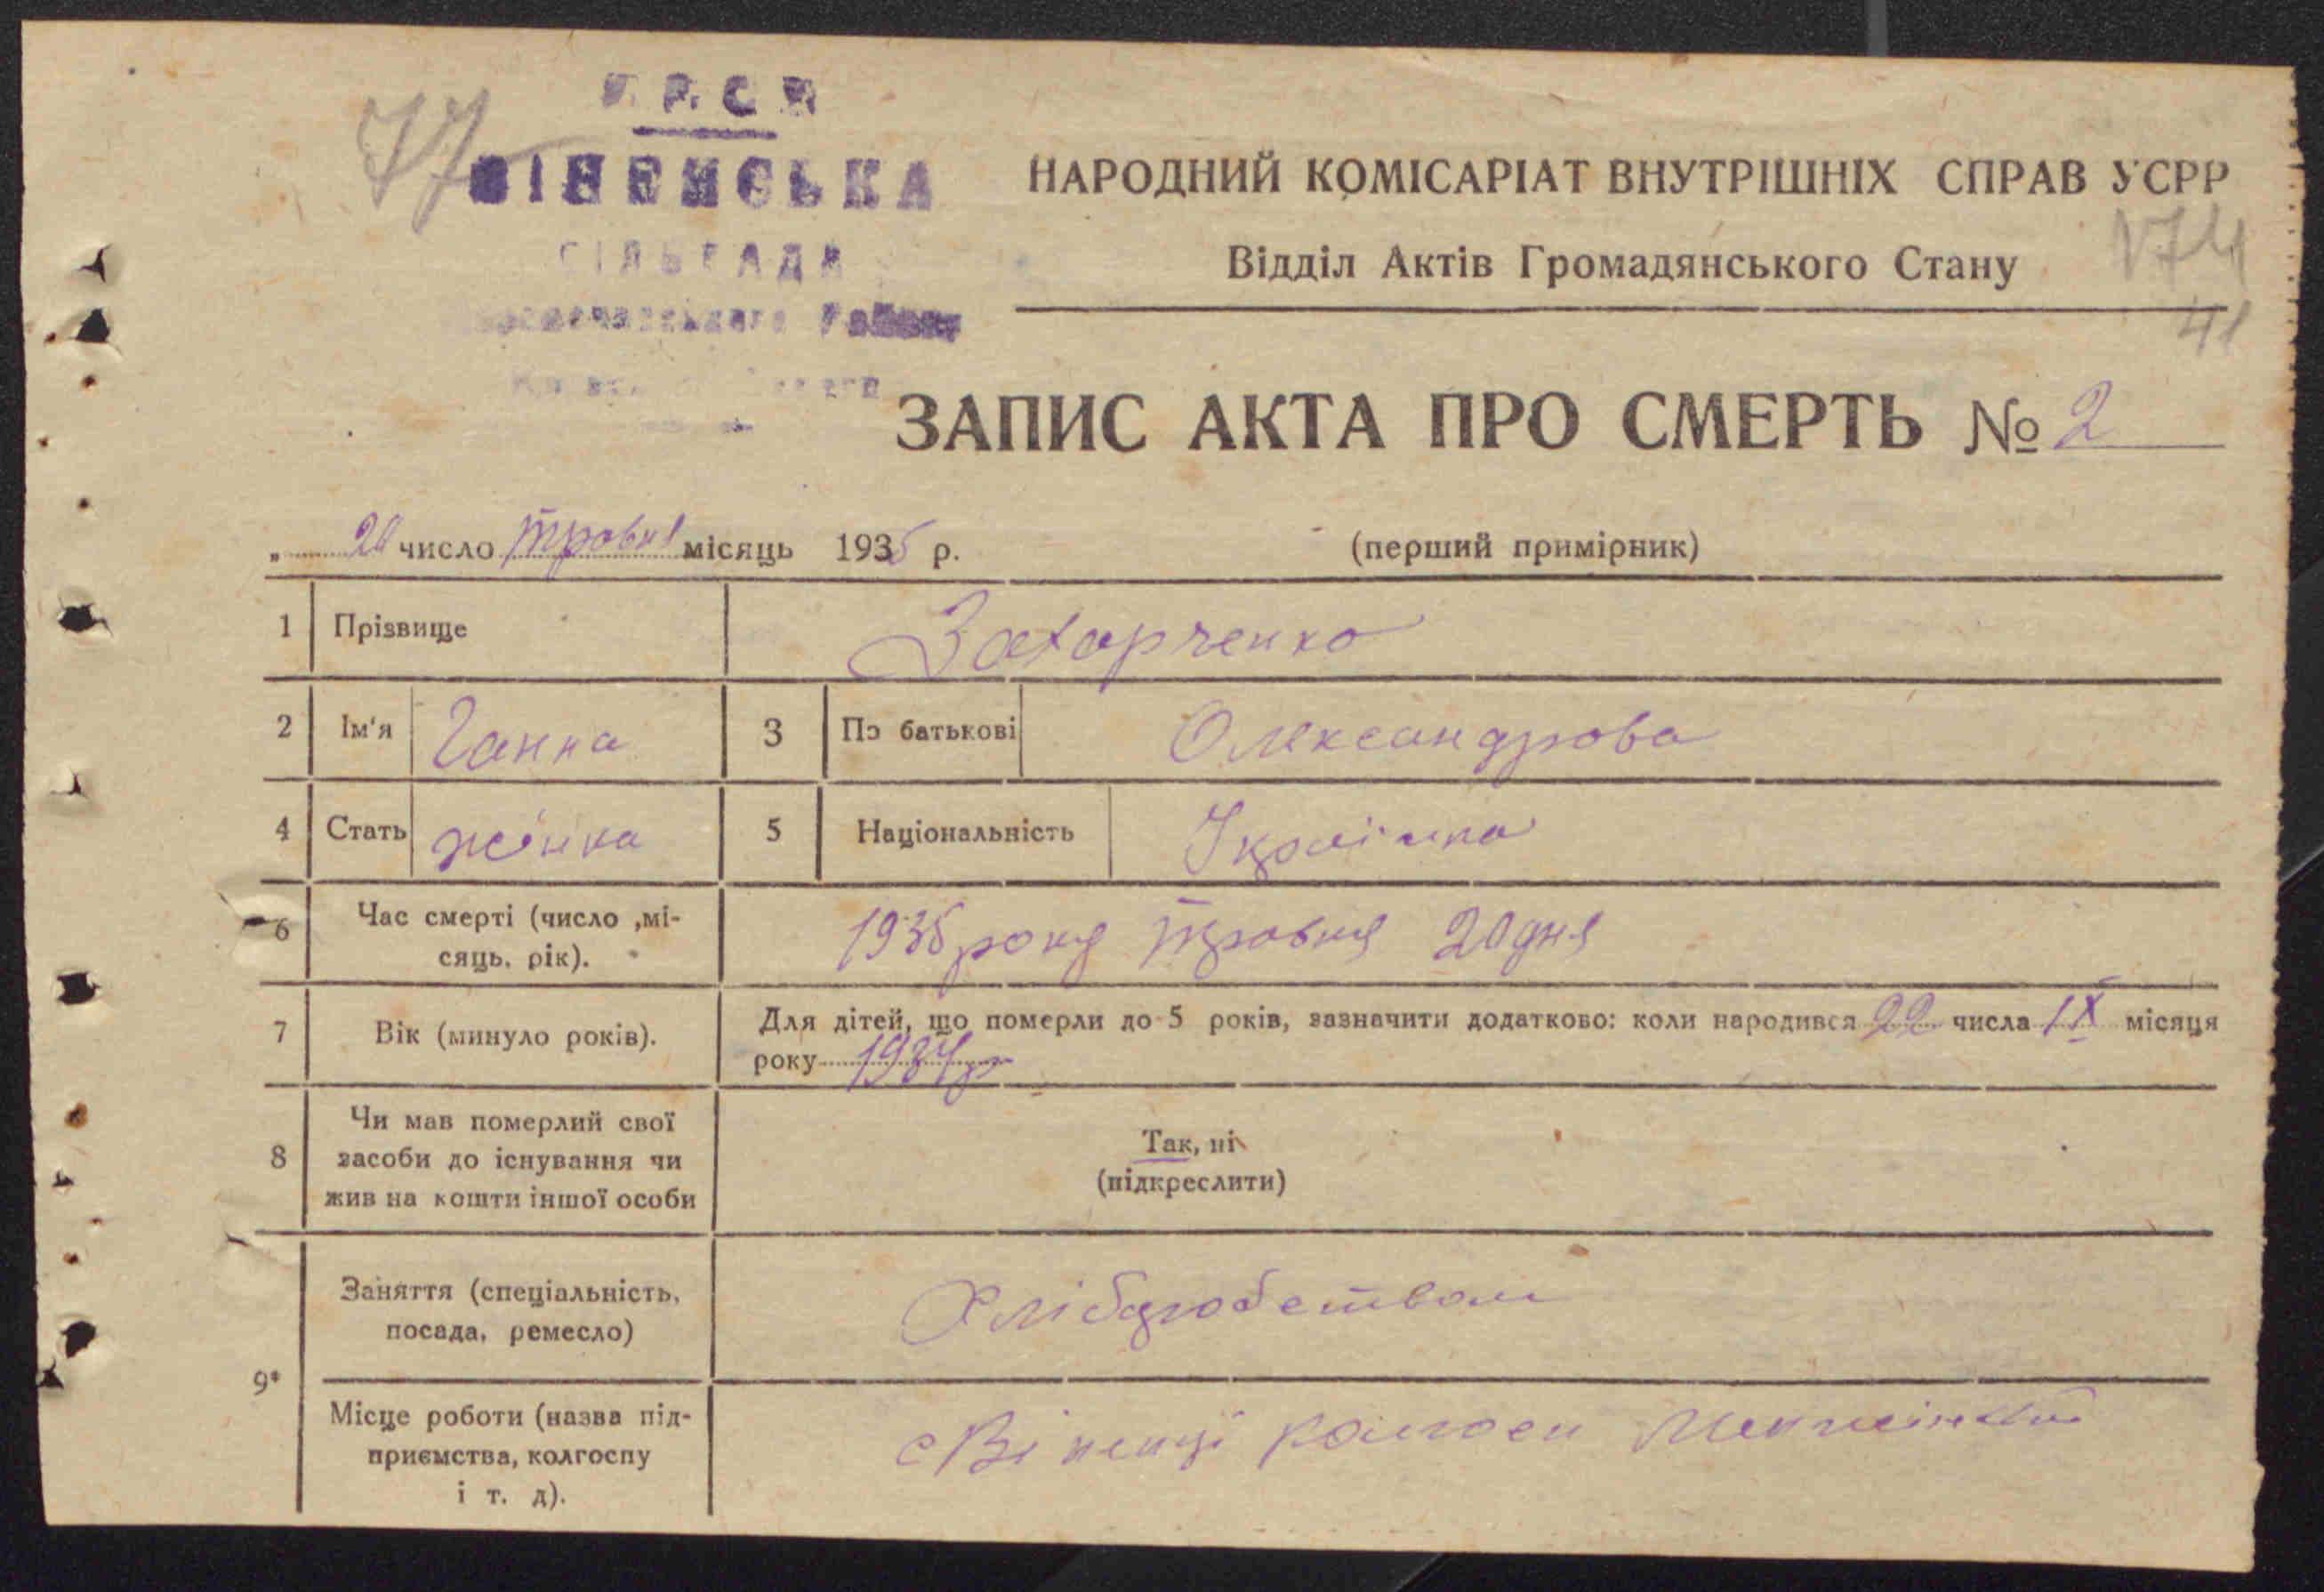 77
У.Р.С.Р.
ВІНЕНСЬКА
СІЛЬРАДА
Району
НАРОДНИЙ КОМІСАРІАТ ВНУТРІШНІХ СПРАВ УСРР
Відділ Актів Громадянського Стану
174
41
ЗАПИС АКТА ПРО СМЕРТЬ № 2
„ 20 число травня місяць 1935 р.
(перший примірник)
1 Прізвище Захарченко
2 Ім'я Ганна 3 По батькові Олександрова
4 Стать жінка 5 Національність Українка
6 Час смерті (число ,мі-
сяць, рік).
1935 року травня 20 дня
7 Вік (минуло років).
Для дітей, що померли до 5 років, зазначити додатково: коли народився 22 числа IX місяця
року 1934 р
8 Чи мав померлий свої
засоби до існування чи
жив на кошти іншої особи
Так, ні
(підкреслити)
9* Заняття (спеціальність,
посада, ремесло)
Хлібробством
Місце роботи (назва під-
приємства, колгоспу
і т. д).
с Віненці